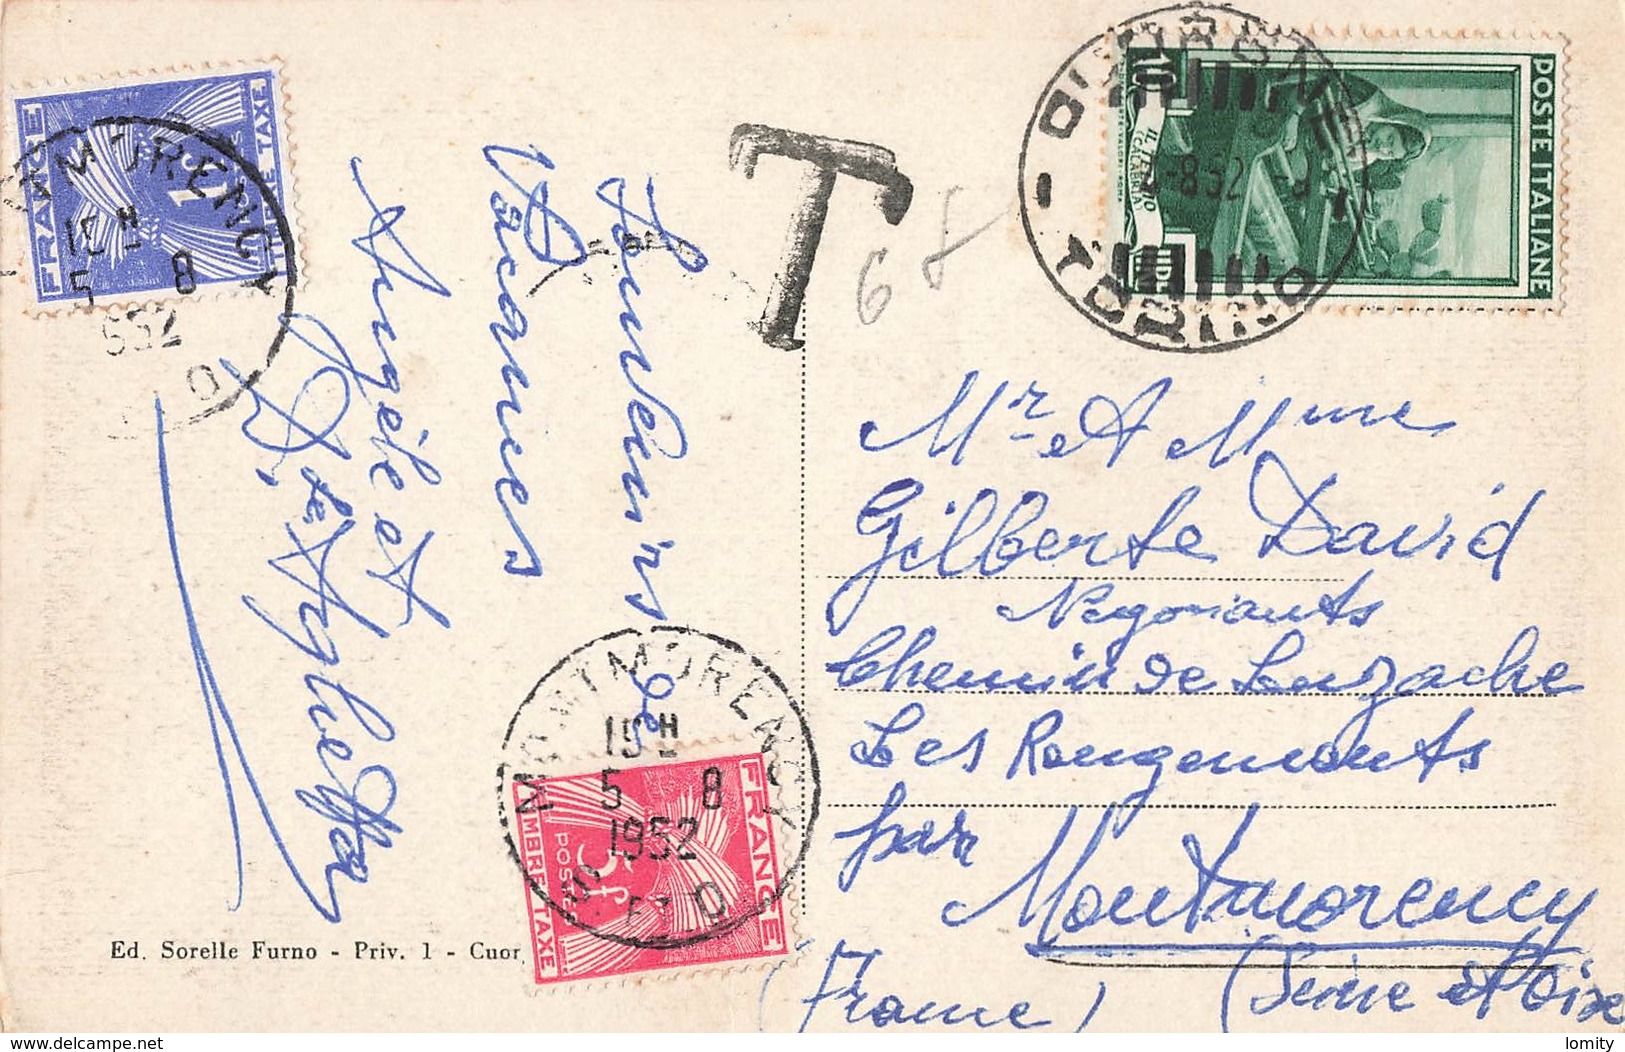 FRANCE
TIMBRE TAXE
1F
POSTES
MONTMORENCY
15 H
5 8
1952
T
68
CUORGNE
TORINO
-8.52
10
IL TELAIO
(CALABRIA)
POSTE ITALIANE
Souvenirs de
Vacances
Angèle et
Mr et Mme
Gilberte David
Négociants
Chemin de Luzache
Les Rangements
par
Montmorency
(Seine et Oise
(France)
MONTMORENCY
15 H
5 8
1952
S. ET O
FRANCE
TIMBRE TAXE
5F
POSTES
Ed. Sorelle Furno - Priv. 1 - Cuor
delcampe.net
lomity